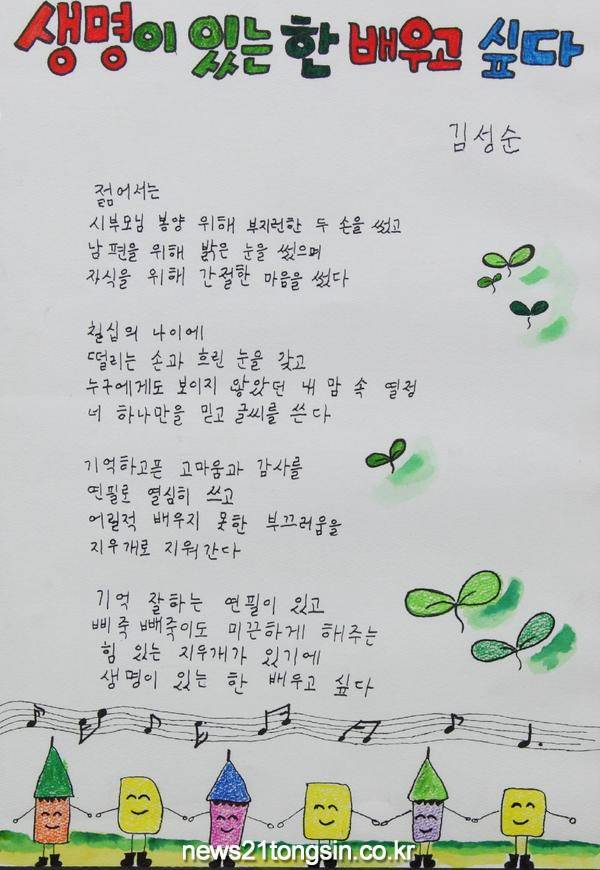 생명이 있는 한 배우고 싶다
김성순
젊어서는
시부모님 봉양 위해 부지런한 두 손을 썼고
남편을 위해 밝은 눈을 썼으며
자식을 위해 간절한 마음을 썼다
칠십의 나이에
떨리는 손과 흐린 눈을 갖고
누구에게도 보이지 않았던 내 맘 속 열정
너 하나만을 믿고 글씨를 쓴다
기억하고픈 고마움과 감사를
연필로 열심히 쓰고
어릴적 배우지 못한 부끄러움을
지우개로 지워간다
기억 잘하는 연필이 있고
삐죽빼죽이도 미끈하게 해주는
힘 있는 지우개가 있기에
생명이 있는 한 배우고 싶다
news21tongsin.co.kr